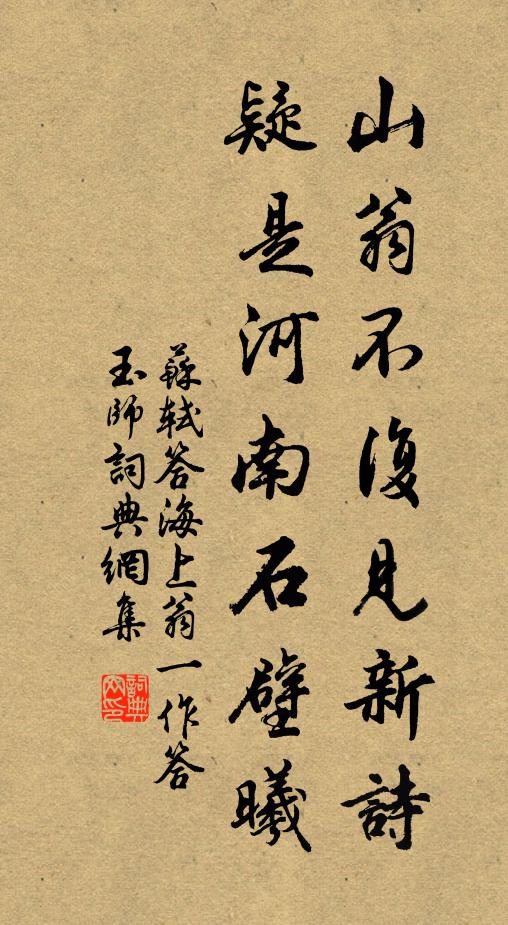 山翁不復見新詩
疑是河南石壁曦
蘇軾答海上翁一作答
玉師詞典網集
詞典